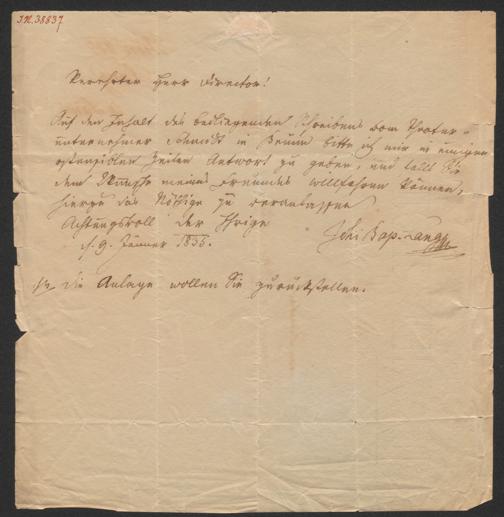 I.N. 38837
Verehrter Herr Director!
Auf den Inhalt des beiliegenden Schreibens vom Theater-
unternehmer Schmidt in Brünn bitte ich mir in einigen
ostensiblen Zeilen Antwort zu geben, und falls Sie
dem Wunsche meines Freundes willfahren können,
hierzu das Nöthige zu veranlassen
Achtungsvoll der Ihrige
d. 9. Jänner 1835. Joh. Bap. Lang
Die Anlage wollen Sie zurückstellen.